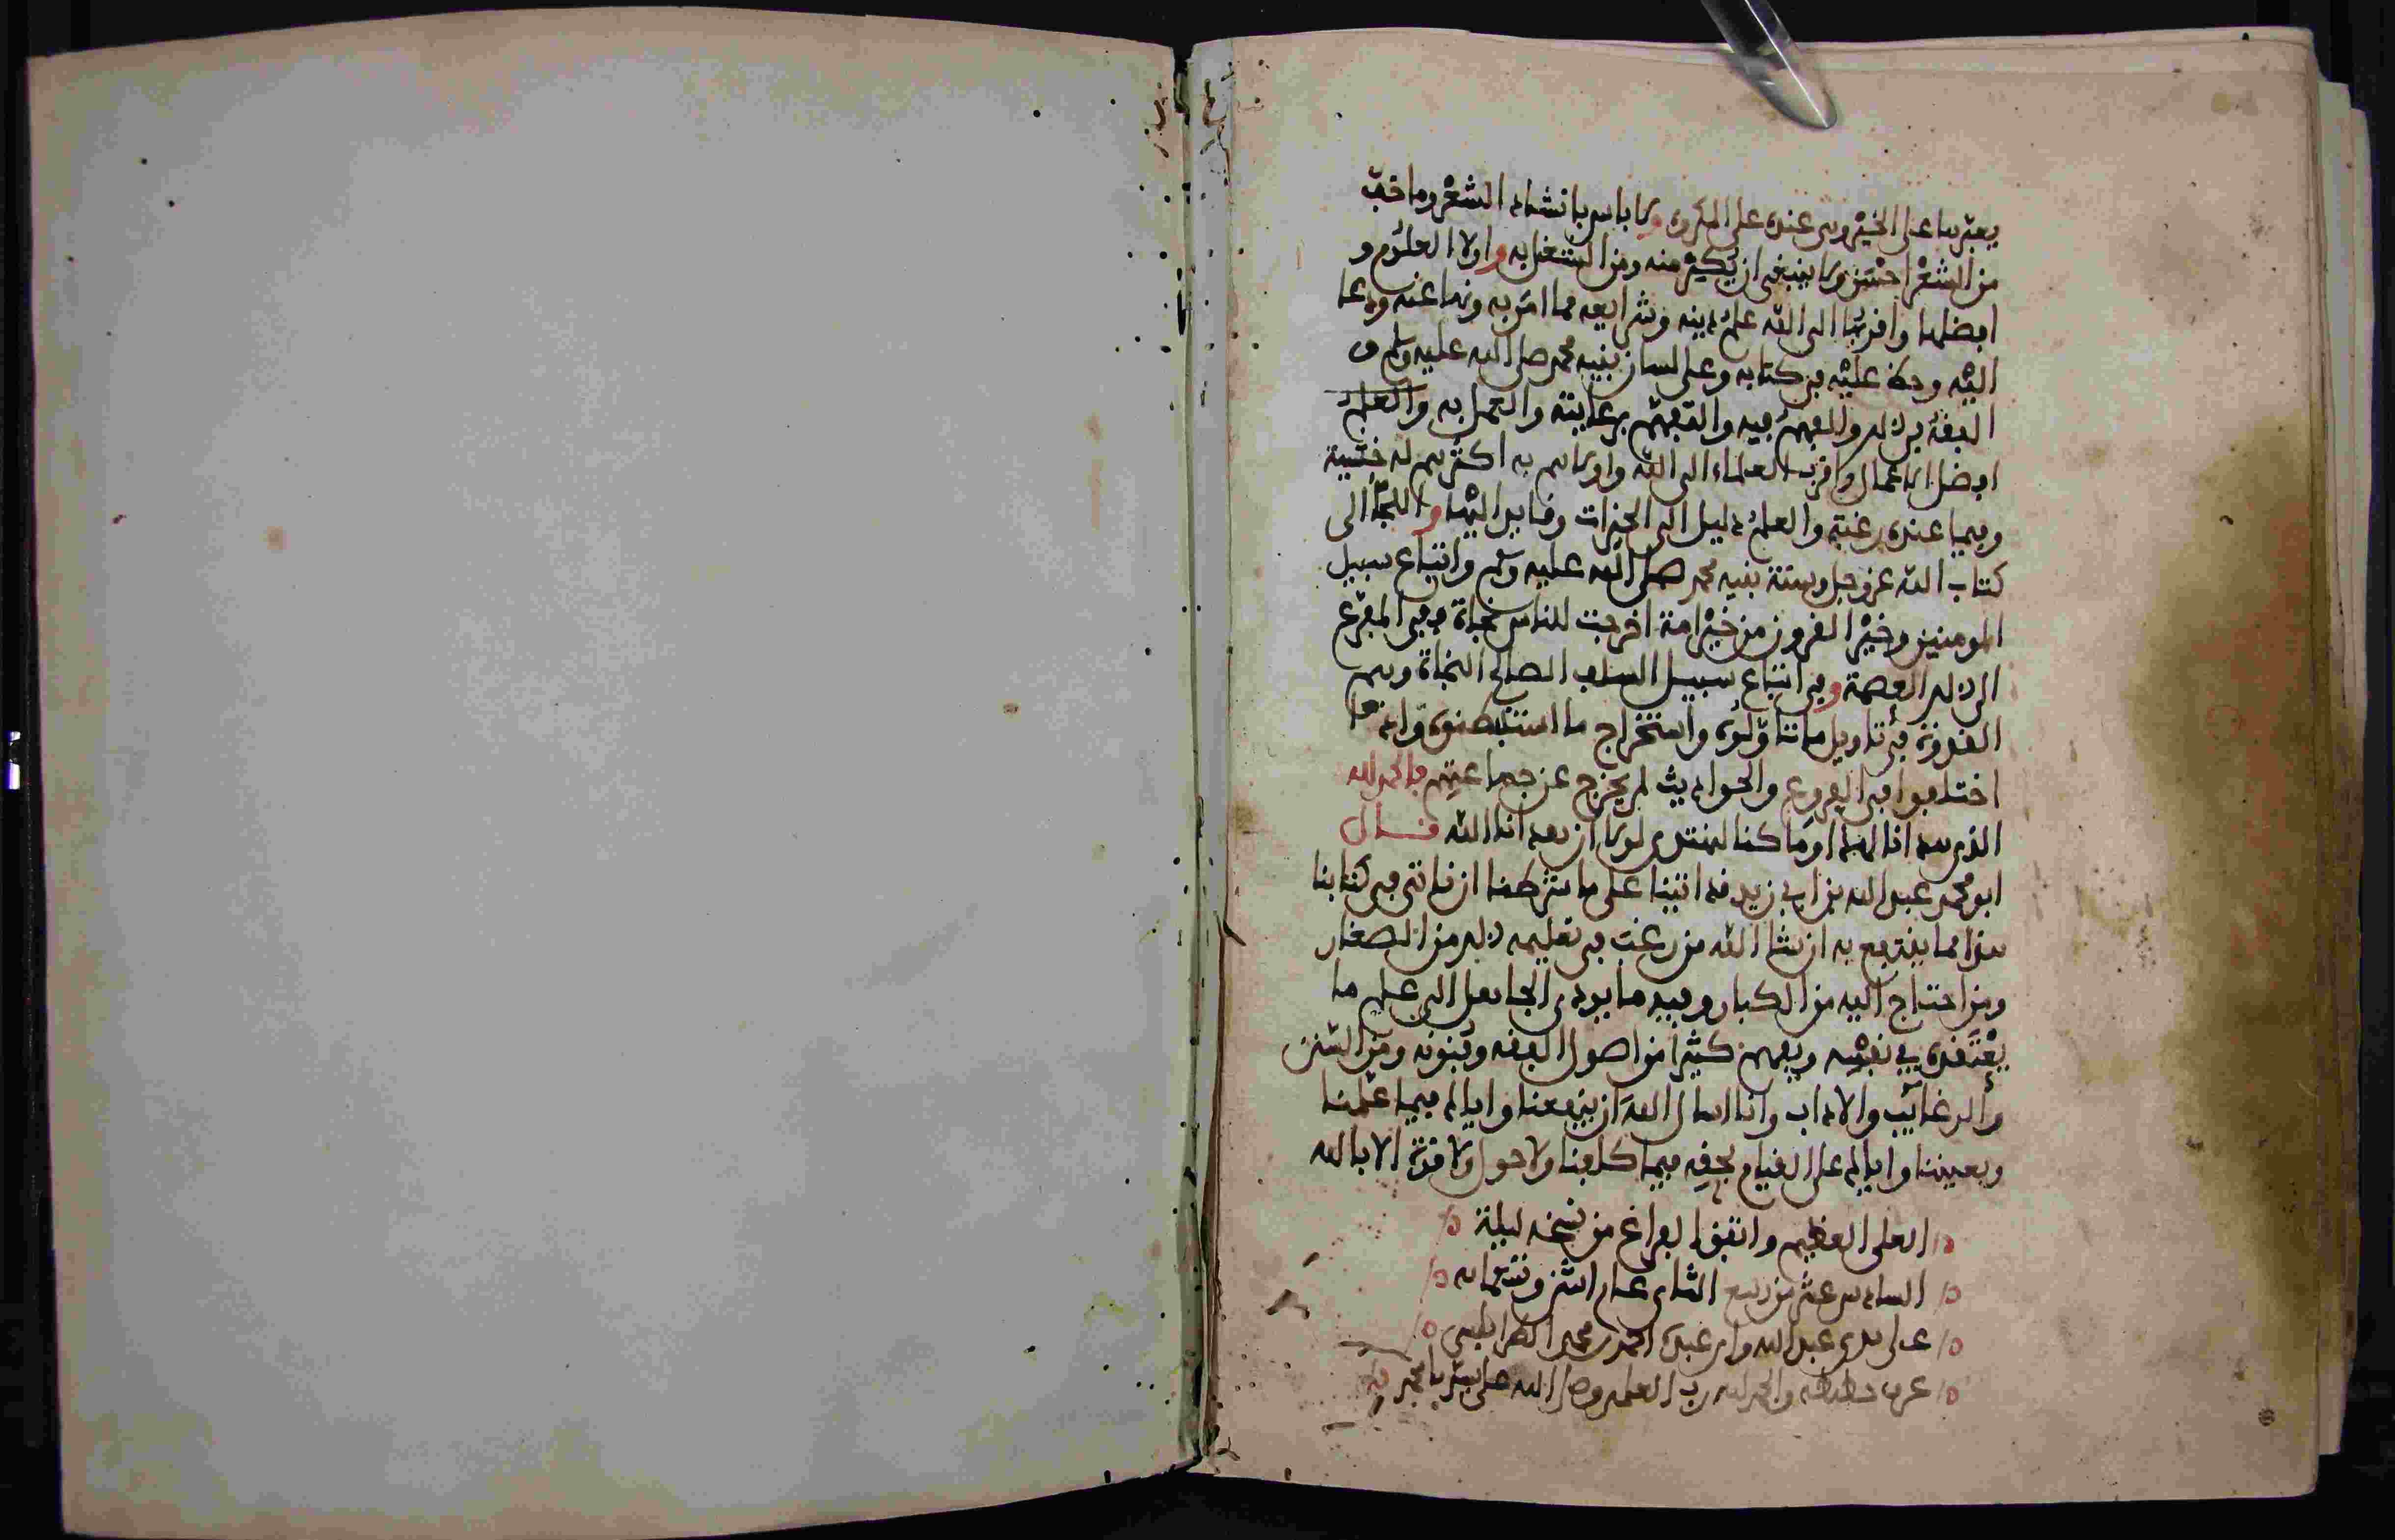 يعبرها على الخير وهي عنده على المكروه ولا باس بانشاد الشعر وما خف
من الشعر احسن ولا ينبغي ان يكثر منه ومن الشغل به واولا العلوم و
افضلها واقربها الى الله علم دينه وشرايعه مما امر به ونها عنه ودعا
اليه وحض عليه في كتابه وعلى لسان نبيه محمد صلى الله عليه وسلم و
الفقه في ذلك والفهم فيه والتهمم برعايته والعمل به والعلم
افضل الاعمال واقرب العلماء الى الله واولاهم به اكثرهم له خشية
وفيما عنده رغبة والعلم دليل الى الخيرات وقايد اليها واللجأ الى
كتاب الله عز وجل وسنة نبيه محمد صلى الله عليه وسلم واتباع سبيل
المومنين وخير القرون من خير امة اخرجت للناس نجاة ففي المفزع
الى ذلك العصمة وفي اتباع سبيل السلف الصالح النجاة وهم
القدوة في تاويل ما تاولوه واستخراج ما استنبطوه واذا
اختلفوا في الفروع والحوادث لم يخرج عن جماعتهم والحمد لله
الذي هدانا لهذا وما كنا لنهتدي لولا ان هدانا الله قال
ابو محمد عبد الله بن ابي زيد قد اتينا على ما شرطنا ان ناتي في كتابنا
هذا مما ينتفع به ان شا الله من رغب في تعليمه ذلك من الصغار
ومن احتاج اليه من الكبار وفيه ما يودي الجاهل الى علم ما
يعتقده في نفسه ويفهم كثيرا من اصول الفقه وفنونه ومن السنن
والرغايب والاداب وانا اسال الله ان ينفعنا واياك فيما علمنا
ويعيننا واياك على القيام بحقه فيما كلفنا ولا حول ولا قوة الا بالله
العلي العظيم واتفق الفراغ من نسخه ليلة
السادس عشر من ربيع الثاني عام اثنين وتسعمايه
على يدي عبد الله وابن عبده احمد بن محمد الطرابلسي
والحمد لله رب العلمين وصلى الله على سيدنا محمد